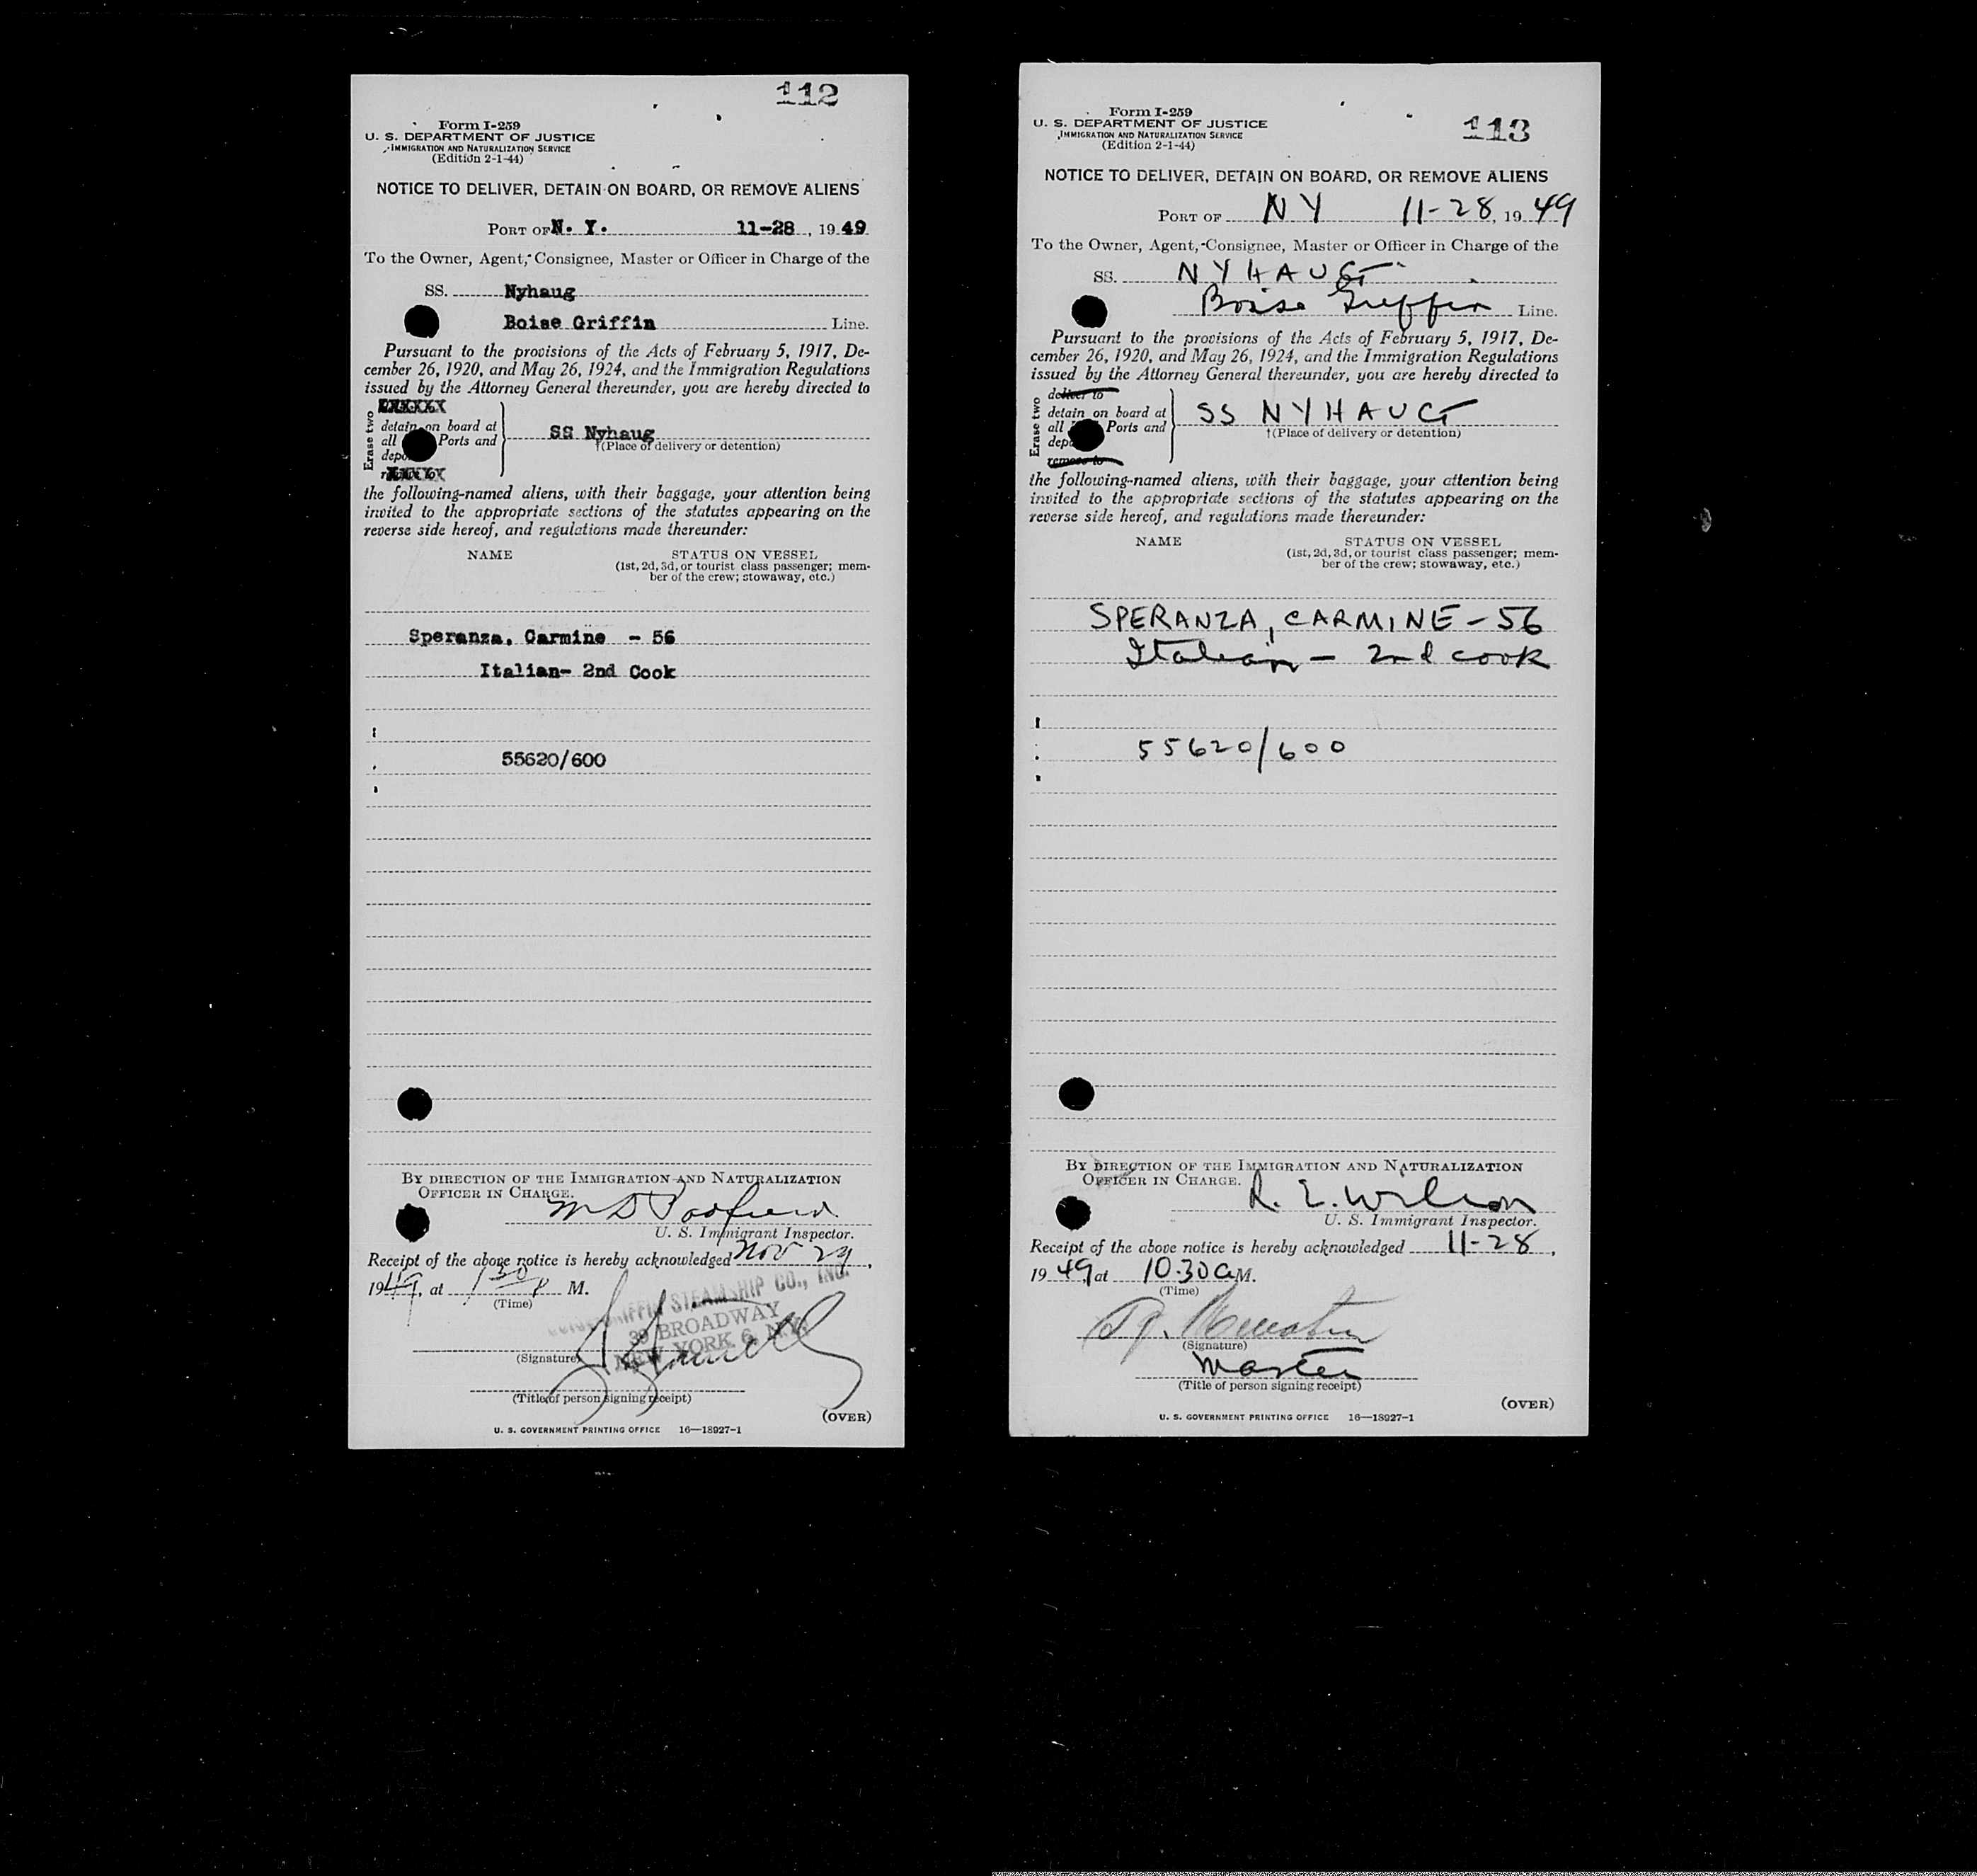 112
Form I-259
U. S. DEPARTMENT OF JUSTICE
IMMIGRATION AND NATURALIZATION SERVICE
(Edition 2-1-44)
NOTICE TO DELIVER, DETAIN ON BOARD, OR REMOVE ALIENS
PORT OF N. Y. 11-28, 1949
To the Owner, Agent, Consignee, Master or Officer in Charge of the
SS. Nyhaug
Boise Griffin Line.
Pursuant to the provisions of the Acts of February 5, 1917, De-
cember 26, 1920, and May 26, 1924, and the Immigration Regulations
issued by the Attorney General thereunder, you are hereby directed to
Erase two
detain on board at
all Ports and
SS Nyhaug
†(Place of delivery or detention)
the following-named aliens, with their baggage, your attention being
invited to the appropriate sections of the statutes appearing on the
reverse side hereof, and regulations made thereunder:
NAME STATUS ON VESSEL
(1st, 2d, 3d, or tourist class passenger; mem-
ber of the crew; stowaway, etc.)
Speranza. Carmine - 56
Italian- 2nd Cook
55620/600
BY DIRECTION OF THE IMMIGRATION AND NATURALIZATION
OFFICER IN CHARGE.
U. S. Immigrant Inspector.
Receipt of the above notice is hereby acknowledged Nov 29,
1949, at 1 30 P M.
(Time)
GRIFFIN STEAMSHIP CO., INC.
39 BROADWAY
NEW YORK 6, N.Y.
(Signature)
(Title of person signing receipt)
(OVER)
U. S. GOVERNMENT PRINTING OFFICE 16—18927-1
113
Form I-259
U. S. DEPARTMENT OF JUSTICE
IMMIGRATION AND NATURALIZATION SERVICE
(Edition 2-1-44)
NOTICE TO DELIVER, DETAIN ON BOARD, OR REMOVE ALIENS
PORT OF NY 11-28, 1949
To the Owner, Agent, Consignee, Master or Officer in Charge of the
SS. NYHAUG
Boise Griffin Line.
Pursuant to the provisions of the Acts of February 5, 1917, De-
cember 26, 1920, and May 26, 1924, and the Immigration Regulations
issued by the Attorney General thereunder, you are hereby directed to
Erase two
deliver to
detain on board at
all Ports and
remove to
SS NYHAUG
†(Place of delivery or detention)
the following-named aliens, with their baggage, your attention being
invited to the appropriate sections of the statutes appearing on the
reverse side hereof, and regulations made thereunder:
NAME STATUS ON VESSEL
(1st, 2d, 3d, or tourist class passenger; mem-
ber of the crew; stowaway, etc.)
SPERANZA, CARMINE - 56
Italian - 2nd cook
55620/600
BY DIRECTION OF THE IMMIGRATION AND NATURALIZATION
OFFICER IN CHARGE.
R. E. Wilson
U. S. Immigrant Inspector.
Receipt of the above notice is hereby acknowledged 11-28,
1949 at 10.30 a M.
(Time)
(Signature)
Master
(Title of person signing receipt)
(OVER)
U. S. GOVERNMENT PRINTING OFFICE 16—18927-1